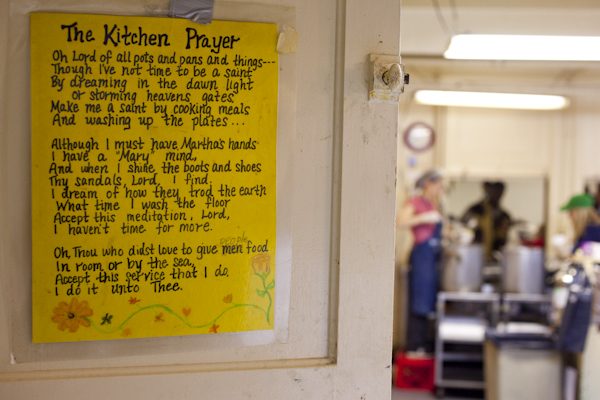 The Kitchen Prayer
Oh Lord of all pots and pans and things---
Though I've not time to be a saint
By dreaming in the dawn light
or storming heavens gates,
Make me a saint by cooking meals
And washing up the plates...
Although I must have Martha's hands
I have a "Mary" mind,
And when I shine the boots and shoes
Thy sandals, Lord, I find.
I dream of how they trod the earth
What time I wash the floor
Accept this meditation, Lord,
I haven't time for more.
people
Oh, Thou who didst love to give men food
In room or by the sea,
Accept this service that I do.
I do it unto Thee.